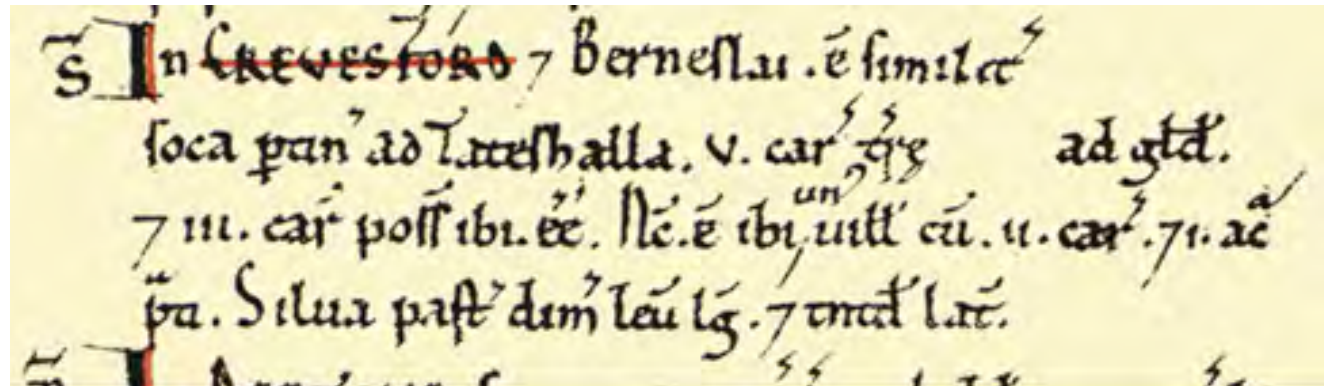 S̄ In CREVESFORD ⁊ Berneslai . ē similit̄
soca ꝑtin̄ ad Tateshalla. v. car̄ tr̄ę ad gld̄.
⁊ iii. car̄ poss̄ ibi. ēē. Nc̄. ē ibi un⁹ uill̄s cū. ii. car̄. ⁊ i. ac̄
p̄ti. Silua past̄ dim̄ leū lḡ. ⁊ tntd̄ lat̄.